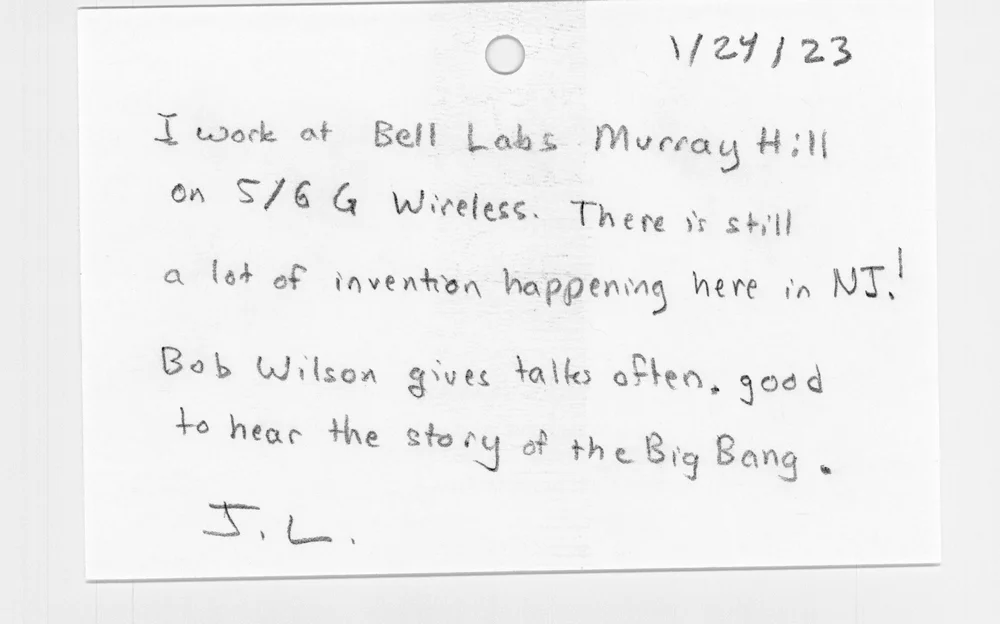 1/24/23
I work at Bell Labs Murray Hill
on 5/6 G Wireless. There is still
a lot of invention happening here in NJ.!
Bob Wilson gives talks often. good
to hear the story of the Big Bang.
J. L.